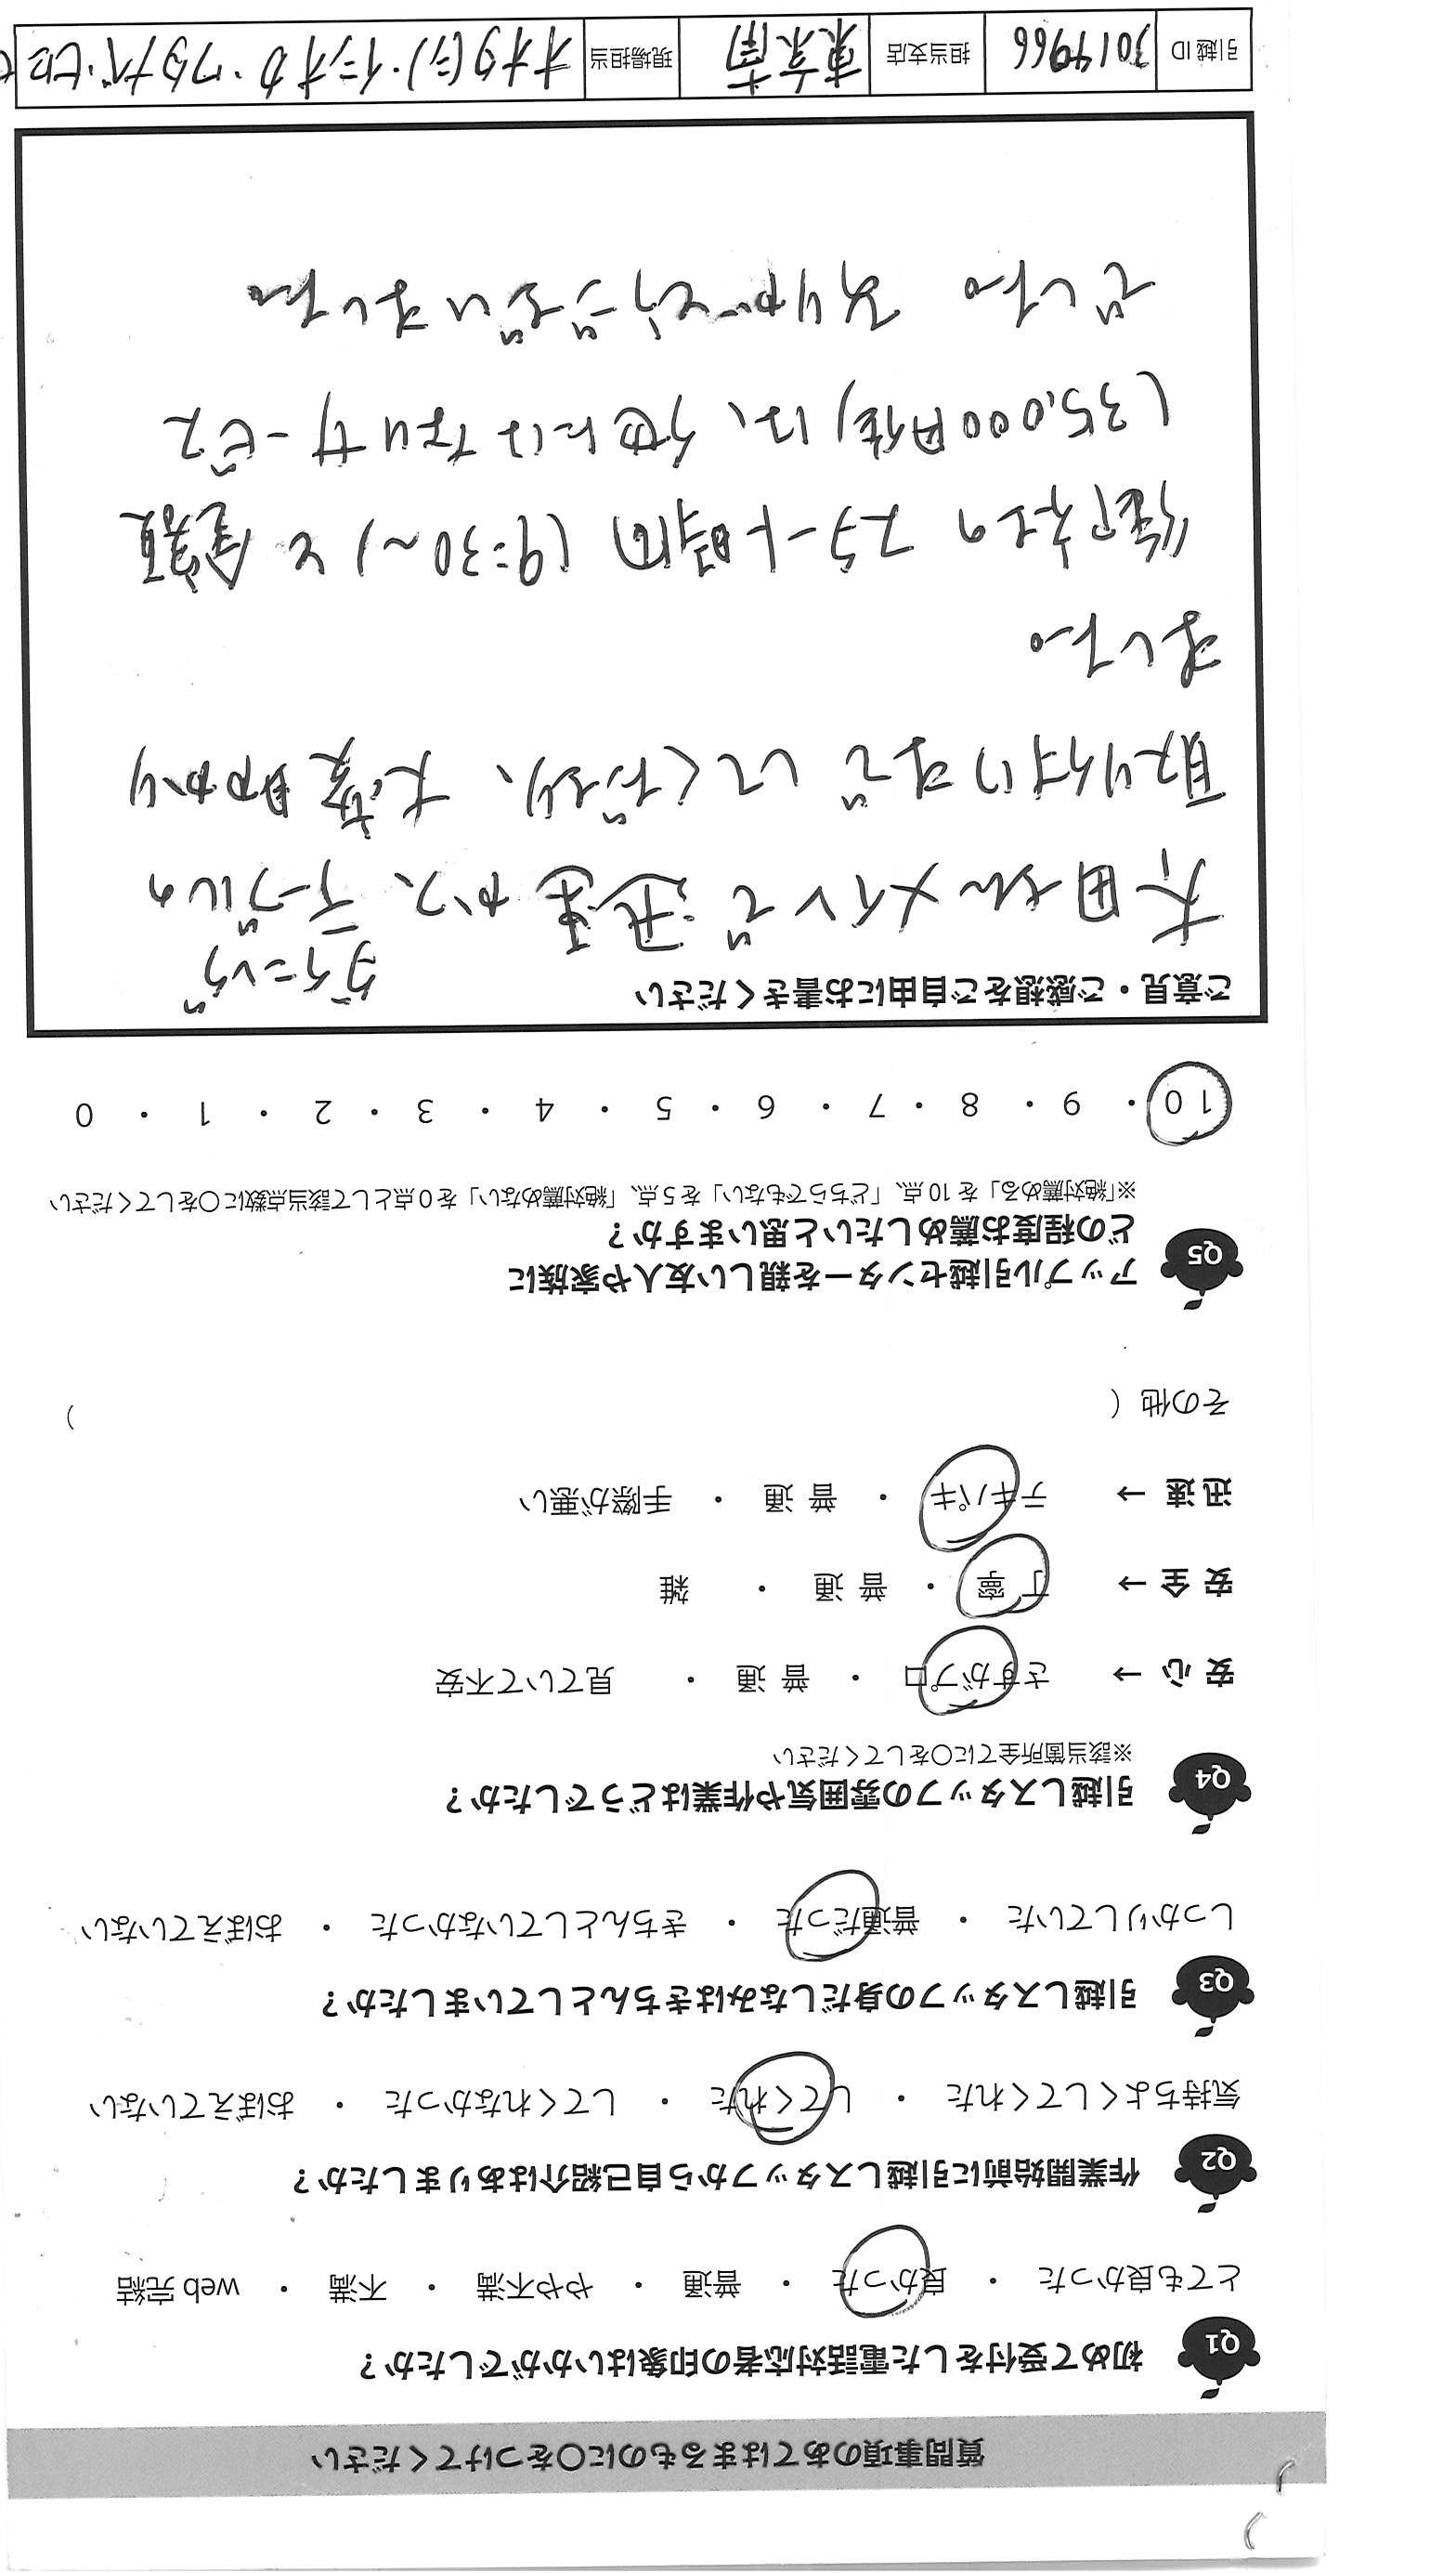 質問事項のあてはまるものに○をつけてください
Q1 初めて受付をした電話対応者の印象はいかがでしたか？
とても良かった ・ 良かった ・ 普通 ・ やや不満 ・ 不満 ・ web 完結
Q2 作業開始前に引越しスタッフから自己紹介はありましたか？
気持ちよくしてくれた ・ してくれた ・ してくれなかった ・ おぼえていない
Q3 引越しスタッフの身だしなみはきちんとしていましたか？
しっかりしていた ・ 普通だった ・ きちんとしていなかった ・ おぼえていない
Q4 引越しスタッフの雰囲気や作業はどうでしたか？
※該当箇所全てに○をしてください
安 心 → さすがプロ ・ 普 通 ・ 見ていて不安
安 全 → 丁 寧 ・ 普 通 ・ 雑
迅 速 → テキパキ ・ 普 通 ・ 手際が悪い
その他（ ）
Q5 アップル引越センターを親しい友人や家族に
どの程度お薦めしたいと思いますか？
※「絶対薦める」を 10 点、「どちらでもない」を 5 点、「絶対薦めない」を 0 点として該当点数に○をしてください
10 ・ 9 ・ 8 ・ 7 ・ 6 ・ 5 ・ 4 ・ 3 ・ 2 ・ 1 ・ 0
ご意見・ご感想をご自由にお書きください
ダイニング
太田さんメインで迅速かつ、テーブルの
取り付けまでしてくださり、大変助かり
ました。
御社のスタート時間 (9:30〜) と金額
(35,000円位) は、他にはないサービス
でした。ありがとうございました。
引越 ID 3014966 担当支店 東京南 現場担当 オオタ(シ)・イシオカ・ワタナベ・ヒロセ